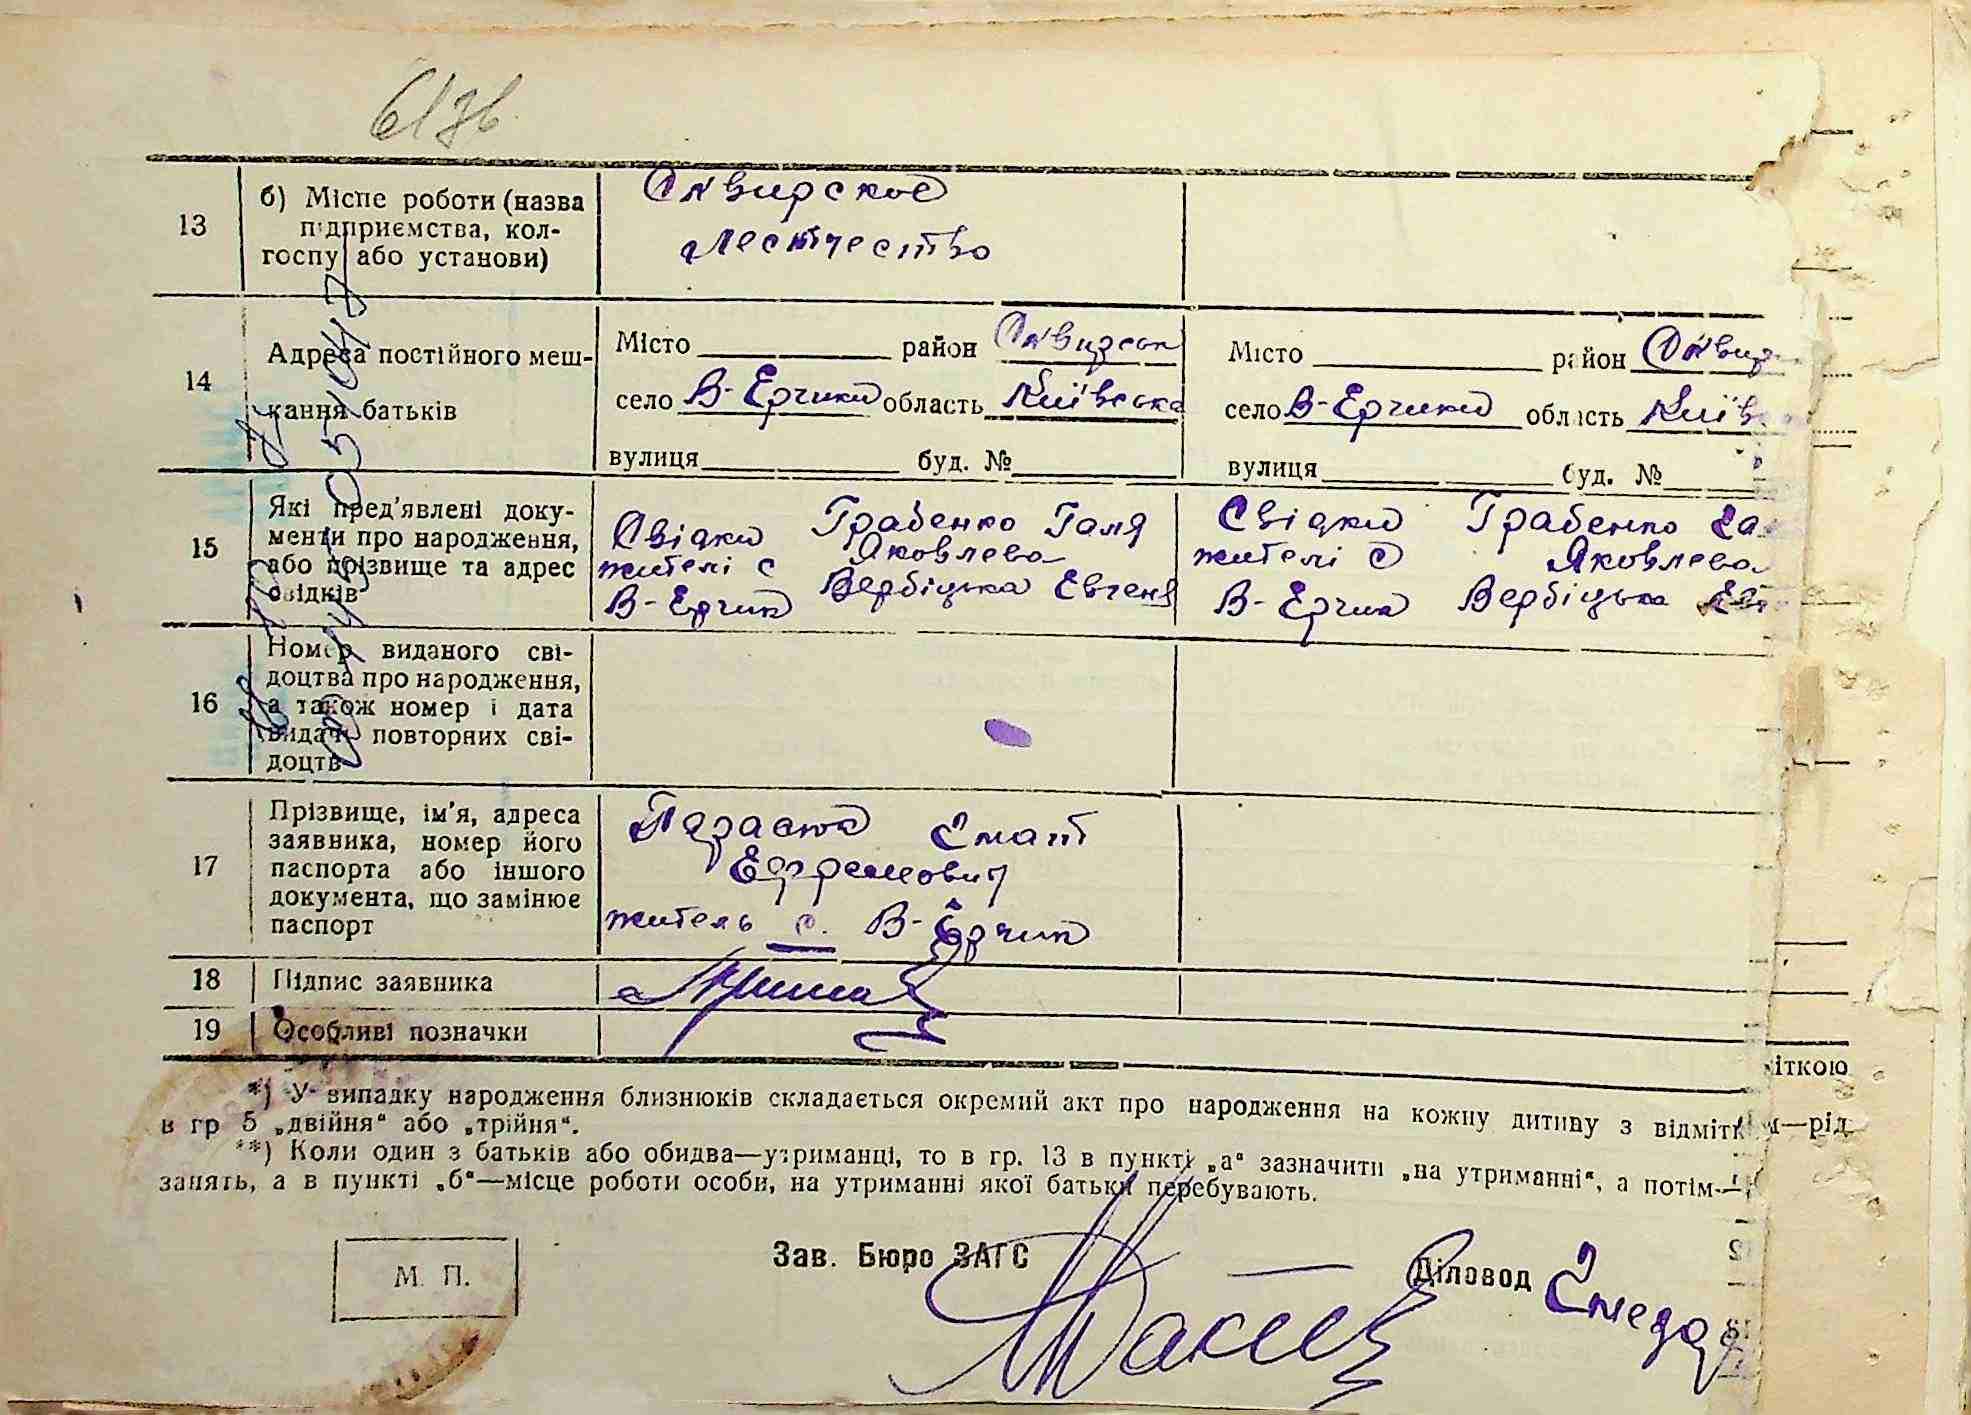 613б
13
б) Місце роботи (назва
підприємства, кол-
госпу або установи)
Сквирское
Лестчество
14
Адреса постійного меш-
кання батьків
Місто район Сквирськ
село В-Єрчики область Київська
вулиця буд. №
Місто район Сквир
село В-Єрчики область Київ
вулиця буд. №
15
Які пред'явлені доку-
менти про народження,
або прізвище та адрес
свідків
Свідки Грабенко Галя
жителі с Яковлева
В-Єрчик Вербіцька Евгеня
Свідки Грабенко Га
жителі с Яковлева
В-Єрчик Вербіцька Евг
16
Номер виданого сві-
доцтва про народження,
а також номер і дата
видачі повторних сві-
доцтв
17
Прізвище, ім'я, адреса
заявника, номер його
паспорта або іншого
документа, що замінює
паспорт
Єфремович
житель с. В-Єрчик
18
Підпис заявника
19
Особливі позначки
*) У випадку народження близнюків складається окремий акт про народження на кожну дитину з відмітк
в гр 5 „двійня“ або „трійня“.
**) Коли один з батьків або обидва—утриманці, то в гр. 13 в пункті „а“ зазначити „на утриманні“, а потім—
занять, а в пункті „б“—місце роботи особи, на утриманні якої батьки перебувають.
іткою
м—рід
М. П.
Зав. Бюро ЗАГС
Діловод